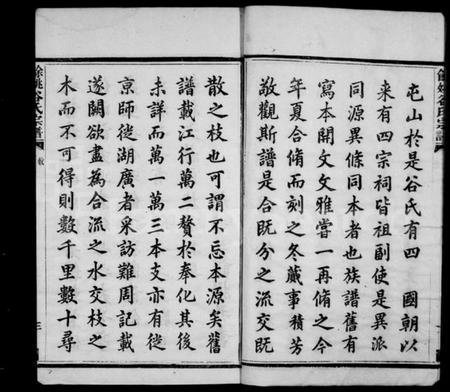 餘姚谷氏宗譜
屯山於是谷氏有四　國朝以
来有四宗祠皆祖副使是異派
同源異條同本者也族譜舊有
寫本開文文雅嘗一再脩之今
年夏合脩而刻之冬蕆事積芳
敬觀斯譜是合既分之流交既
散之枝也可謂不忘本源矣舊
譜載江行萬二贅於奉化其後
未詳而萬一萬三本支亦有徙
京師徙湖廣者采訪難周記載
遂闕欲盡為合流之水交枝之
木而不可得則數千里數十尋
餘姚谷氏宗譜
三